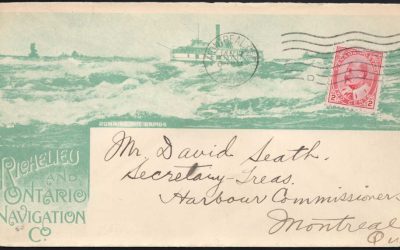 RUNNING THE RAPIDS
RICHELIEU
AND
ONTARIO
NAVIGATION
CO
Mr. David Seath.
Secretary-Treas.
Harbour Commissioners
Montreal
Que